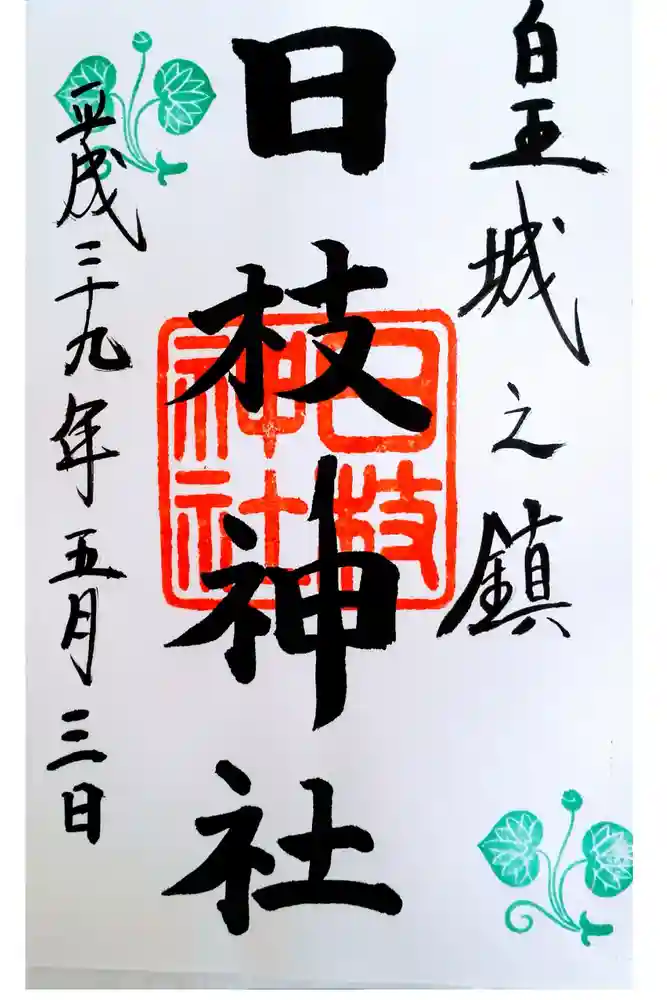 皇城之鎮
日枝神社
日枝
神社
平成二十九年五月三日